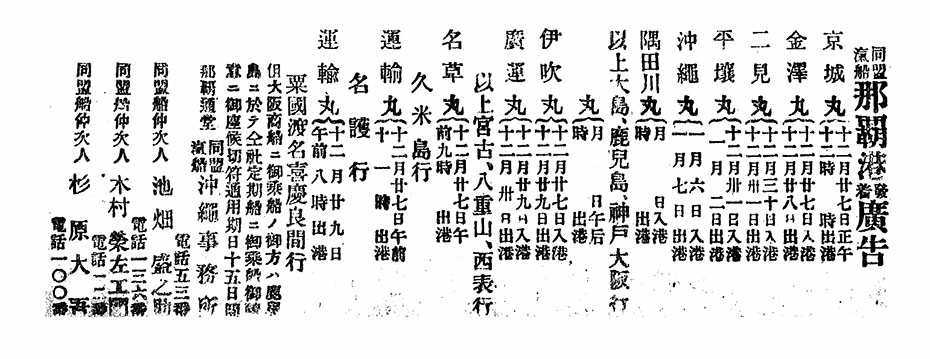 同盟汽船 那覇港発着廣告
京城丸 十二月廿七日正午 時出港
金澤丸 十二月廿七日入港 十二月廿八日出港
二見丸 十二月三十日入港 十二月卅一日出港
平壤丸 十二月卅一日入港 一月二日出港
沖繩丸 一月六日入港 一月七日出港
隅田川丸 月 日入港 時 出港
丸 月 日午后 時 出港
以上大島、鹿兒島、神戸大阪行
伊吹丸 十二月廿七日入港 十二月廿九日出港
廣運丸 十二月廿九日入港 十二月卅日出港
以上宮古、八重山、西表行
名草丸 十二月廿七日午前九時 出港
久米島行
運輸丸 十二月廿七日午前十一時 出港
名護行
運輸丸 十二月廿九日午前八時出港
粟國渡名喜慶良間行
但大阪商船ニ御乘船ノ御方ハ鹿兒
島ニ於テ仝社定期船ニ御乘船御
ニ御座候切符通用期日十五日間
那覇通堂 同盟汽船 沖繩事務所
電話五三番
同盟船仲次人 池畑盛之助
電話一三六番
同盟船仲次人 木村榮左工門
電話一二番
同盟船仲次人 杉原大吾
電話一〇〇番